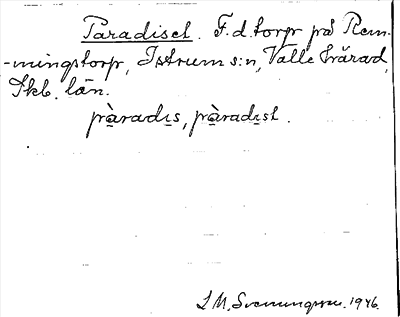 Paradiset. F.d. torp på Rem-
-mingstorp, Istrum s:n, Valle härad,
Skb. län.
pàradıs, pàradıst.
S M. Svenungsson. 1946.